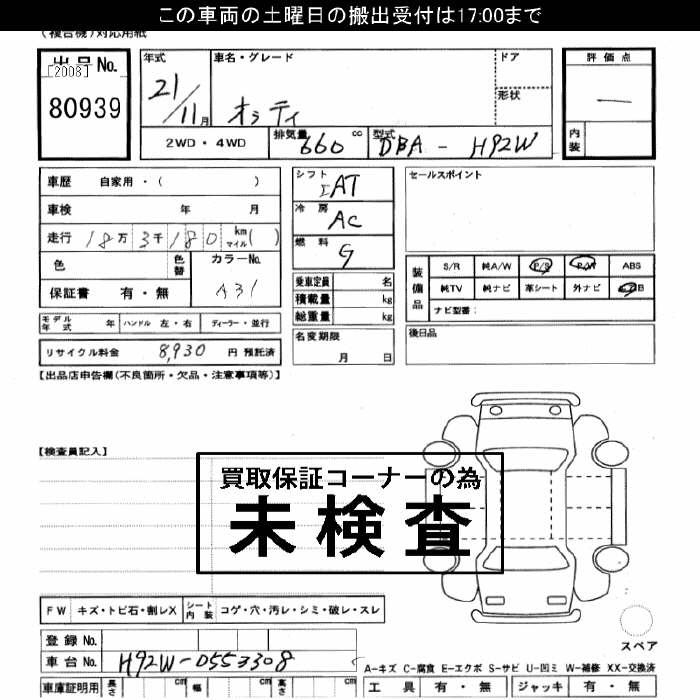 この車両の土曜日の搬出受付は17:00まで
(複合機)対応用紙
出品No.
[2008]
80939
年式
21/11月
車名・グレード
オッティ
ドア
形状
評価点
―
内装
2WD・4WD
排気量 660 cc
型式 DBA - H92W
車歴 自家用・( )
車検 年 月
走行 18万 3千 180 km マイル( )
色 色替 カラーNo.
保証書 有・無 A31
モデル年式 年 ハンドル 左・右 ディーラー・並行
リサイクル料金 8,930 円 預託済
シフト
IAT
冷房
AC
燃料
G
乗車定員 名
積載量 kg
総重量 kg
名変期限
月 日
セールスポイント
装備品
S/R 純A/W P/S P/W ABS
純TV 純ナビ 革シート 外ナビ
ナビ型番:
後日品
【出品店申告欄(不良箇所・欠品・注意事項等)】
【検査員記入】
買取保証コーナーの為
未検査
FW キズ・トビ石・割レX シート内装 コゲ・穴・汚レ・シミ・破レ・スレ
スペア
登録 No.
車台 No. H92W-0553308
車庫証明用 長さ cm 幅 cm 高さ cm
A-キズ C-腐食 E-エクボ S-サビ U-凹ミ W-補修 XX-交換済
工具 有・無 ジャッキ 有・無